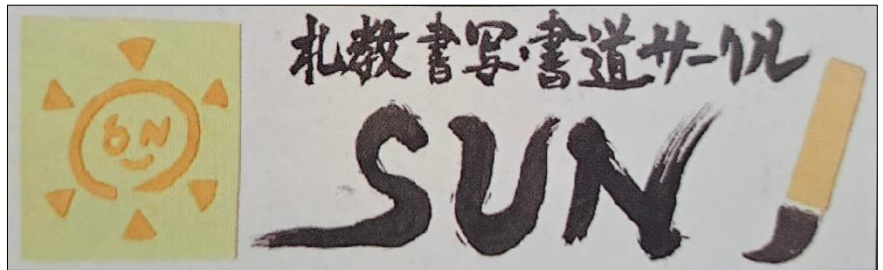 札教書写・書道サークル
SUN